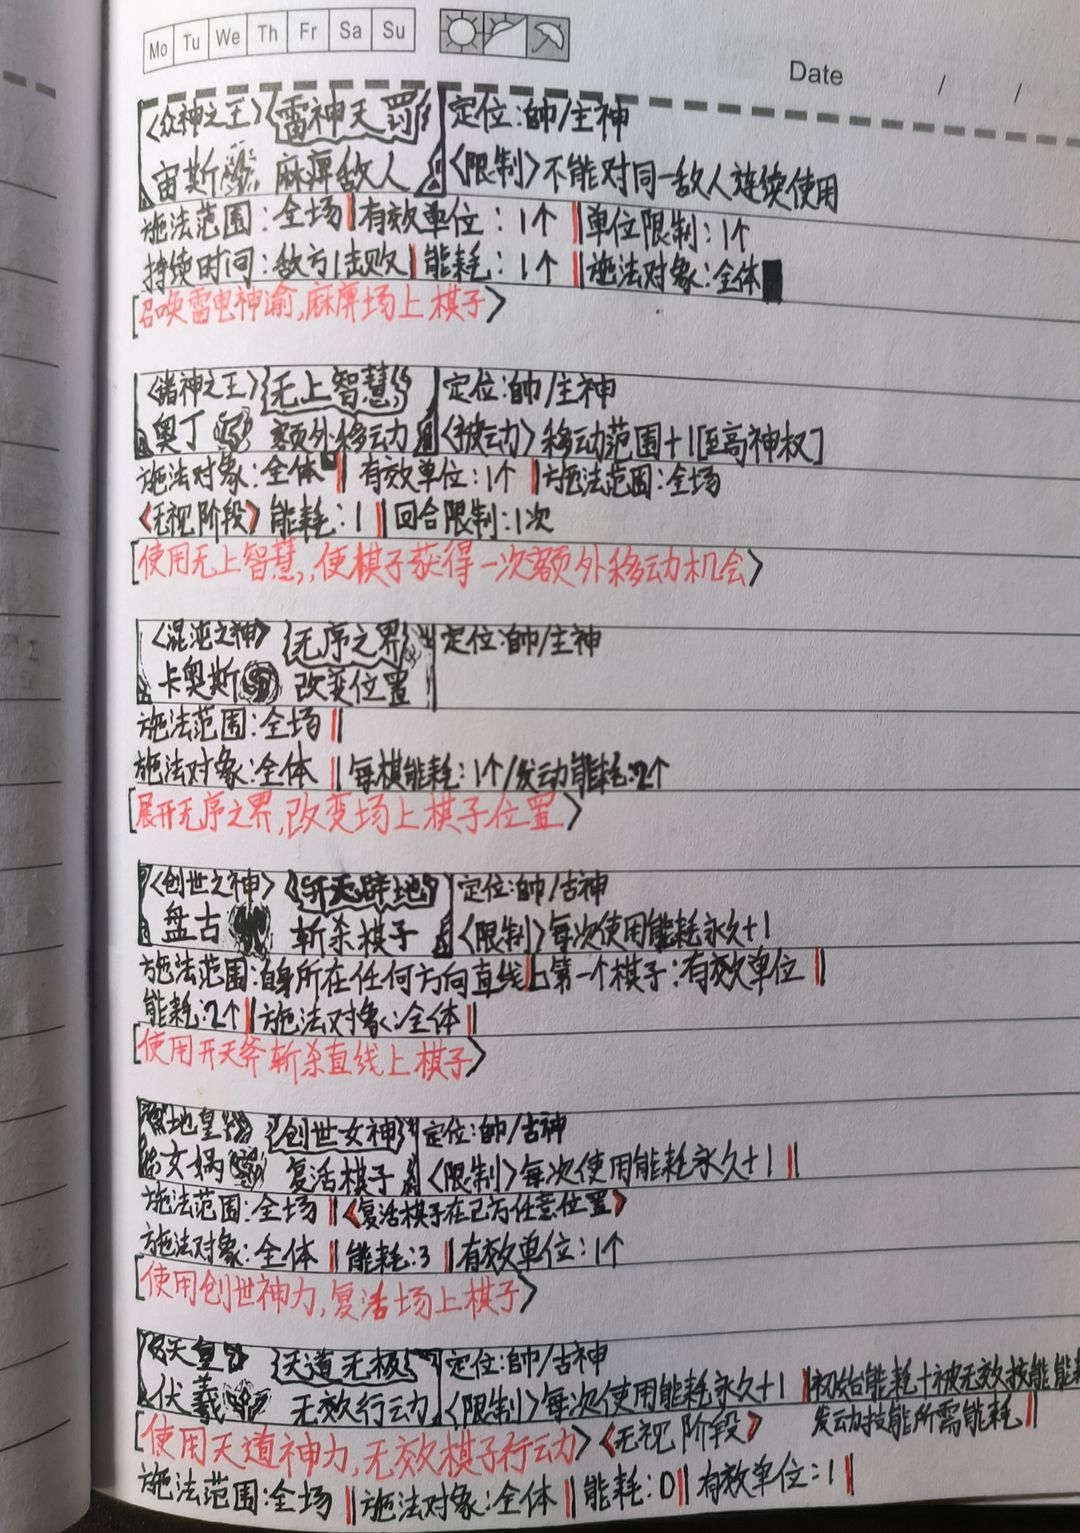 Mo Tu We Th Fr Sa Su
Date / /
〈众神之王〉〈雷神天罚〉 定位:帥/主神
宙斯 麻痹敌人 〈限制〉不能对同一敌人连续使用
施法范围:全场‖有效单位:1个‖单位限制:1个
持续时间:敌方1击败‖能耗:1个‖施法对象:全体
[召唤雷电神谕,麻痹场上棋子〉
〈诸神之王〉{无上智慧} 定位:帥/主神
奥丁 额外移动 〈被动〉移动范围+1[至高神权]
施法对象:全体‖有效单位:1个‖施法范围:全场
《无视阶段》能耗:1‖回合限制:1次
[使用无上智慧,使棋子获得一次额外移动机会〉
〈混沌之神〉{无序之界} 定位:帥/主神
卡奥斯 改变位置
施法范围:全场‖
施法对象:全体‖每棋能耗:1个/发动能耗:2个
[展开无序之界,改变场上棋子位置〉
〈创世之神〉《开天辟地》 定位:帥/古神
盘古 斩杀棋子 〈限制〉每次使用能耗永久+1
施法范围:自身所在任何方向直线上第一个棋子:有效单位‖
能耗:2个‖施法对象:全体‖
[使用开天斧斩杀直线上棋子〉
地皇 {创世女神} 定位:帥/古神
女娲 复活棋子 〈限制〉每次使用能耗永久+1‖
施法范围:全场‖《复活棋子在己方任意位置》
施法对象:全体‖能耗:3‖有效单位:1个
[使用创世神力,复活场上棋子〉
天皇 {天道无极} 定位:帥/古神
伏羲 无效行动 〈限制〉每次使用能耗永久+1‖初始能耗+被无效技能能耗
[使用天道神力,无效棋子行动〉《无视阶段》 发动技能所需能耗‖
施法范围:全场‖施法对象:全体‖能耗:0‖有效单位:1‖